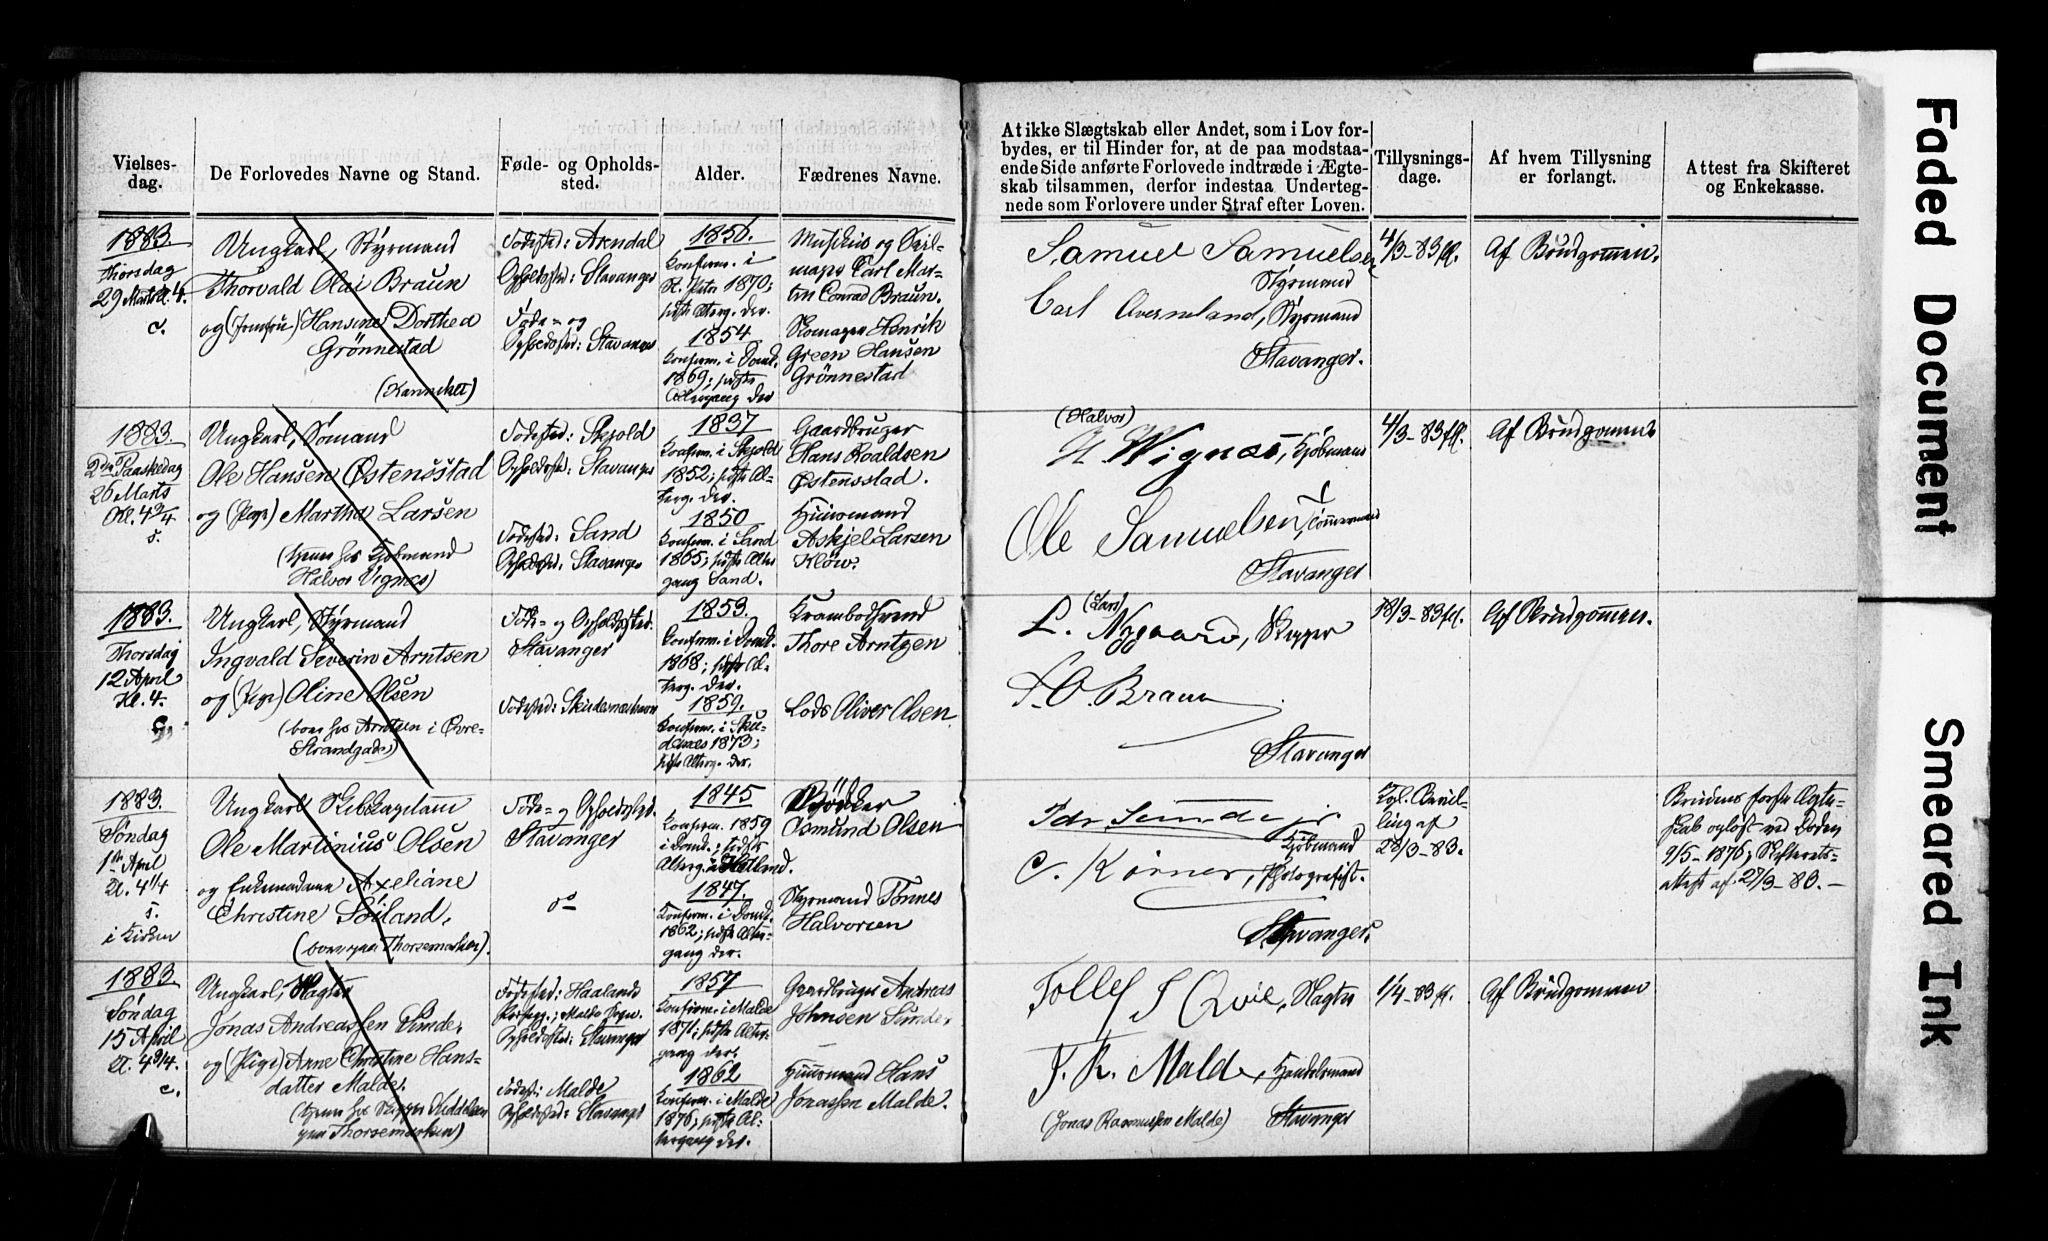 Vielses-
dag.
De Forlovedes Navne og Stand.
Føde- og Opholds-
sted.
Alder.
Fædrenes Navne.
At ikke Slægtskab eller Andet, som i Lov for-
bydes, er til Hinder for, at de paa modstaa-
ende Side anførte Forlovede indtræde i Ægte-
skab tilsammen, derfor indestaa Underteg-
nede som Forlovere under Straf efter Loven.
Tillysnings-
dage.
Af hvem Tillysning
er forlangt.
Attest fra Skifteret
og Enkekasse.
1883.
Thorsdag
29 Marts Kl. 4.
c.
Ungkarl, Styrmand
Thorvald Olai Braun
og (Jomfru) Hansine Dorthea
Grønnestad
Fødested: Arndal
Opholdssted: Stavanger
Føde- og
Opholdssted: Stavanger
1856.
Konfirm. i
St. Petri 1870;
sidste Alterg. der.
1854.
Konfirm. i Domk.
1869; sidste
Altergang der
Musikus og
Carl Mar-
tin Conrad Braun.
Skomager Henrik
Green Hansen
Grønnestad
Samuel Samuelsen
Styrmand
Carl Styrmand
Stavanger.
4/3-83 fl.
Af Brudgommen.
1883.
2den Paaskedag
26 Marts
Kl. 4 3/4
s.
Ungkarl, Sømand
Ole Hansen Østensstad
og (Pige) Martha Larsen
(tjener hos Kjøbmand
Halvor Vignæs)
Fødested: Skjold
Opholdssted: Stavanger
Fødested: Sand
Opholdssted: Stavanger
1837
Konfirm. i Skjold
1852; sidste Al-
terg. der.
1850
Konfirm. i Sand
1865; sidste Alter-
gang Sand.
Gaardbruger
Hans Roaldsen
Østensstad.
Huusmand
Askjel Larsen
Kløw.
(Halvor)
H. Wignæs, Kjøbmand
Ole Samuelsen, Tømmermand
Stavanger
4/3-83 fl.
Af Brudgommen
1883.
Thorsdag
12 April
Kl. 4.
c.
Ungkarl, Styrmand
Ingvald Severin Arntsen
og (Pige) Oline Olsen
(boer hos Arntsen i Øvre-
Strandgade)
Føde- og Opholdssted:
Stavanger
Fødested: Skudesneshavn
1853.
Konfirm. i Domk.
1868; sidste Al-
terg. der.
1859.
Konfirm. i Sku-
desnes 1873;
sidste Alterg. der.
Krambodsvend
Thore Arntzen
Lods Oliver Olsen
(Lars)
L. Nygaard, Skipper
T. O. Braun
Stavanger
18/3-83 fl.
Af Brudgommen.
1883.
Søndag
1ste April
Kl. 4 1/4
s.
i Kirken
Ungkarl Skibskaptain
Ole Martinius Olsen
og Enkemadame Axeliane
Christine Soiland,
(boer paa Thorsemarken).
Føde- og Opholdssted.
Stavanger
do
1845
Konfirm. 1859
i Domk.; sidste
Alterg. i Hetland.
1847.
Konfirm. i Domk.
1862; sidste Alter-
gang der.
Bødker
Osmund Olsen
Styrmand Tønnes
Halvorsen
Pdr Sunde jr.
Kjøbmand
C. Körner, Photografist.
Stavanger.
Kgl. Bevil-
ling af
28/3-83.
Brudens første Ægte-
skab opløst ved Døden
9/5-1876; Skifterets-
attest af 27/3-83.-
1883
Søndag
15 April
Kl. 4 3/4.
c.
Ungkarl, Vægter
Jonas Andreassen Sunde,
og (Pige) Anne Christine Hans-
datter Malde.
(tjener hos Skipper Middelsen
paa Thorsemarken)
Fødested: Haalands
Præstg.; Malde Sogn.
Opholdssted: Stavanger
Fødest: Malde
Opholdssted: Stavanger
1857
Konfirm. i Malde
1871; sidste Alter-
gang der.
1862
Konfirm. i Malde
1876; sidste Al-
tergang der.
Gaardbruger Andreas
Johnsen Sunde,
Huusmand Hans
Jonassen Malde.
Tollef T Qvie, Vægter
J. R. Malde, Handelsmand
(Jonas Rasmussen Malde) Stavanger
1/4-83 fl.
Af Brudgommen
Faded Document
Smeared Ink